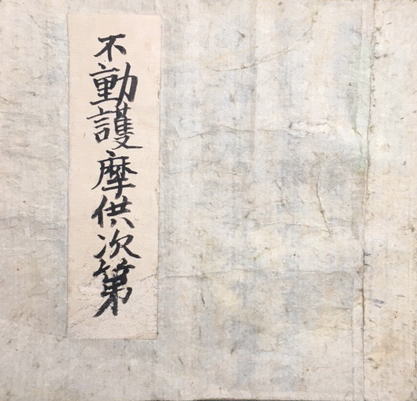 不動護摩供次第